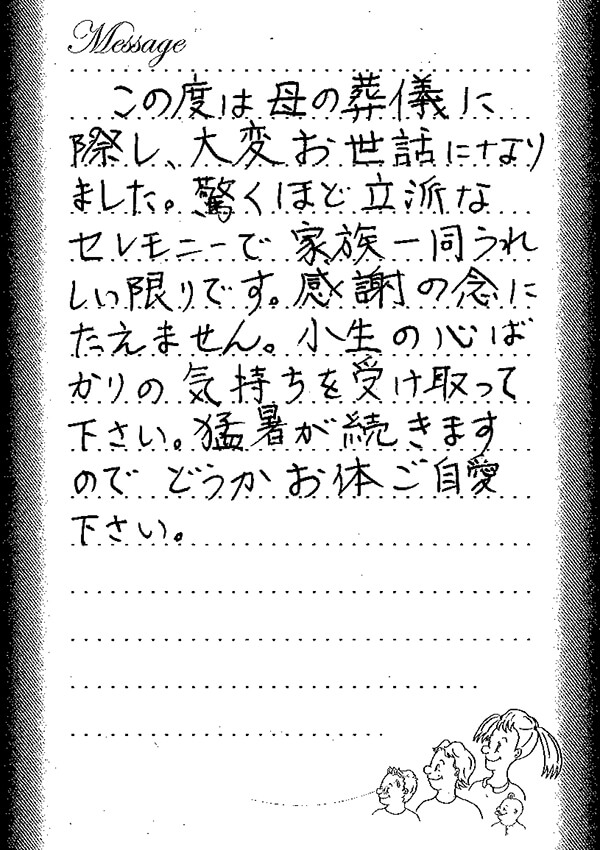 Message
この度は母の葬儀に
際し、大変お世話になり
ました。驚くほど立派な
セレモニーで家族一同うれ
しい限りです。感謝の念に
たえません。小生の心ば
かりの気持ちを受け取って
下さい。猛暑が続きます
のでどうかお体ご自愛
下さい。